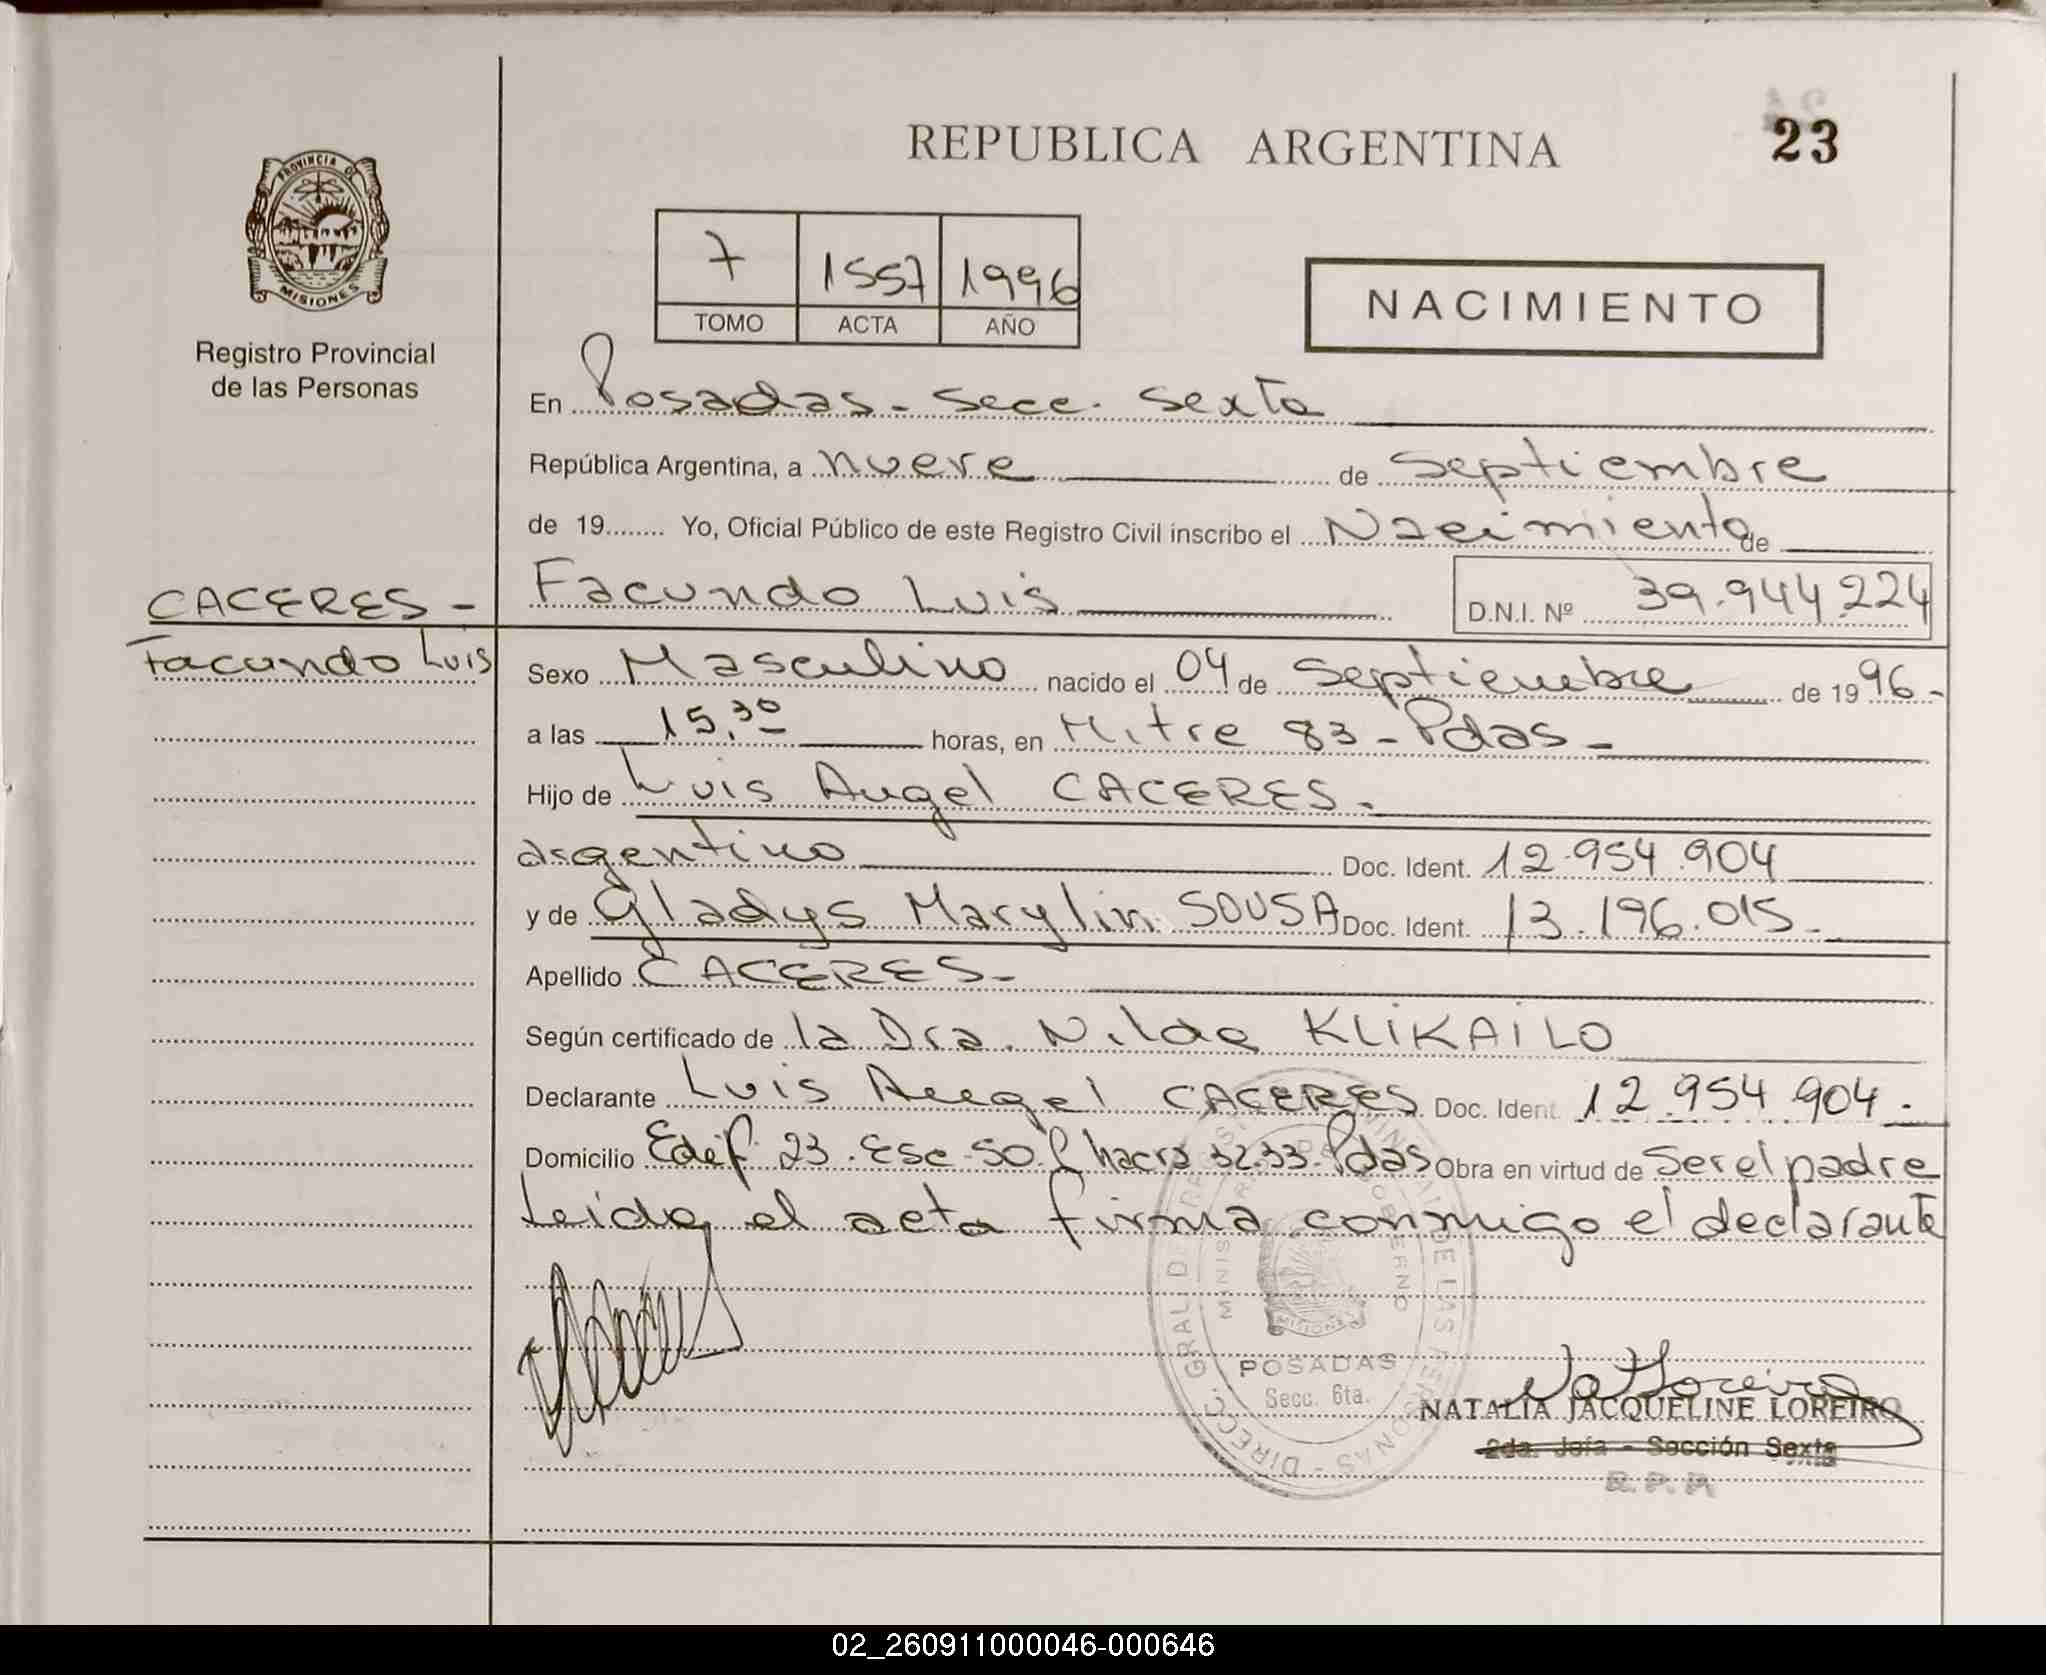 REPUBLICA ARGENTINA
23
PROVINCIA DE
MISIONES
Registro Provincial
de las Personas
7 1557 1996
TOMO ACTA AÑO
NACIMIENTO
En Posadas - Secc. Sexta
República Argentina, a nueve de Septiembre
de 19........ Yo, Oficial Público de este Registro Civil inscribo el Nacimiento de
CACERES - Facundo Luis D.N.I. Nº 39.944.224
Facundo Luis
Sexo Masculino nacido el 04 de Septiembre de 1996.-
a las 15,30 horas, en Mitre 83 - Pdas -
Hijo de Luis Angel CACERES.
argentino Doc. Ident. 12.954.904
y de Gladys Marylin SOUSA Doc. Ident. 13.196.015.-
Apellido CACERES.-
Según certificado de la Dra. Nilda KLIKAILO
Declarante Luis Angel CACERES Doc. Ident. 12.954.904.-
Domicilio Edif. 23. Esc. 50. Chacra 32.33. Pdas Obra en virtud de Ser el padre
Leida el acta firma conmigo el declarante
POSADAS
Secc. 6ta.
MISIONES
NATALIA JACQUELINE LOREIRO
2da. Jefa - Sección Sexta
R.P.P.
02_260911000046-000646